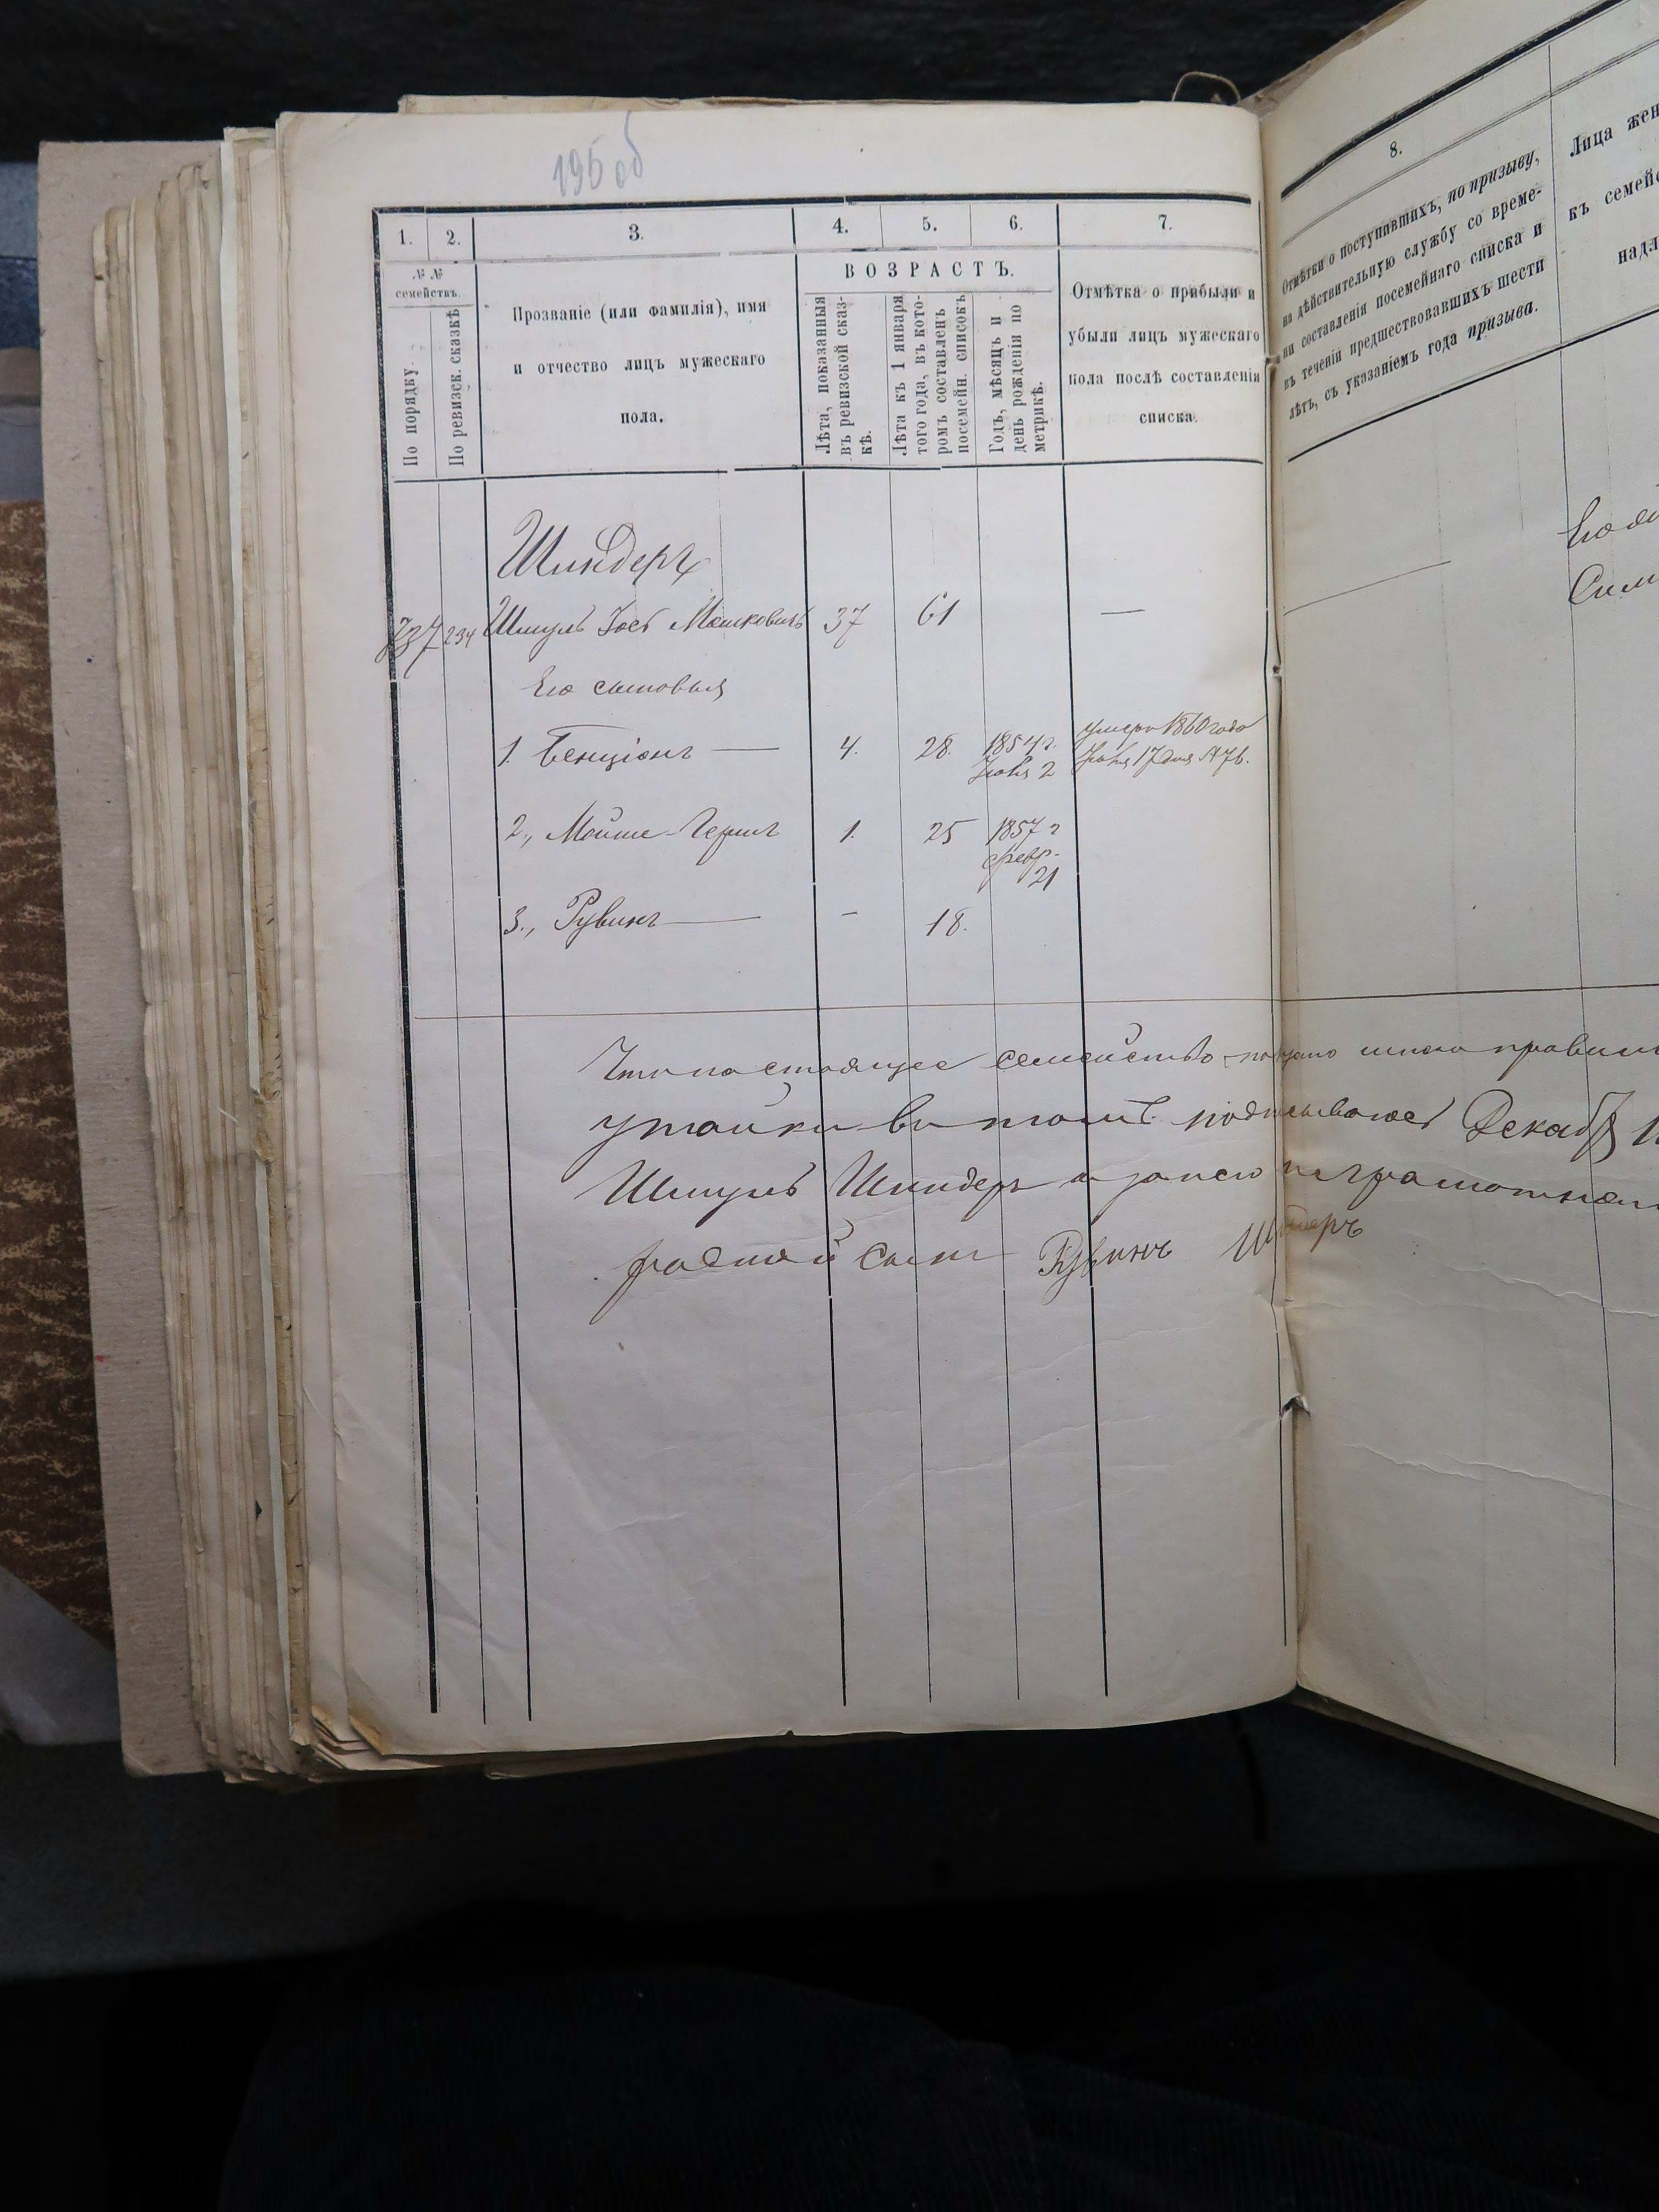 195 об
1. 2. 3. 4. 5. 6. 7.
№ №
семействъ.
По порядку.
По ревизск. сказкѣ
Прозваніе (или фамилія), имя
и отчество лицъ мужескаго
пола.
ВОЗРАСТЪ.
Лѣта, показанныя
въ ревизской сказ-
кѣ.
Лѣта къ 1 января
того года, въ кото-
ромъ составленъ
посемейн. списокъ
Годъ, мѣсяцъ и
день рожденія по
метрикѣ.
Отмѣтка о прибыли и
убыли лицъ мужескаго
пола послѣ составленія
списка.
Шиндеръ
737 234 Шмуль Іосъ Мошковичъ 37 61 —
Его сыновья
1. Бенціонъ — 4. 28. 1854 г. умеръ 1860 года
Іюня 2 Іюня 17 дня № 76.
2., Мойше-Гершъ 1. 25 1857 г
февр.
21
3., Рувинъ — - 18.
Что настоящее семейство показано мною
утайки въ томъ подписываюсь Декабр
Шмуль Шиндеръ а за него
сынъ Рувинъ Шиндеръ
8.
Отмѣтки о поступившихъ, по призыву,
на дѣйствительную службу со време-
ни составленія посемейнаго списка и
въ теченіи предшествовавшихъ шести
лѣтъ, съ указаніемъ года призыва.
Лица жен
къ семейс
надл